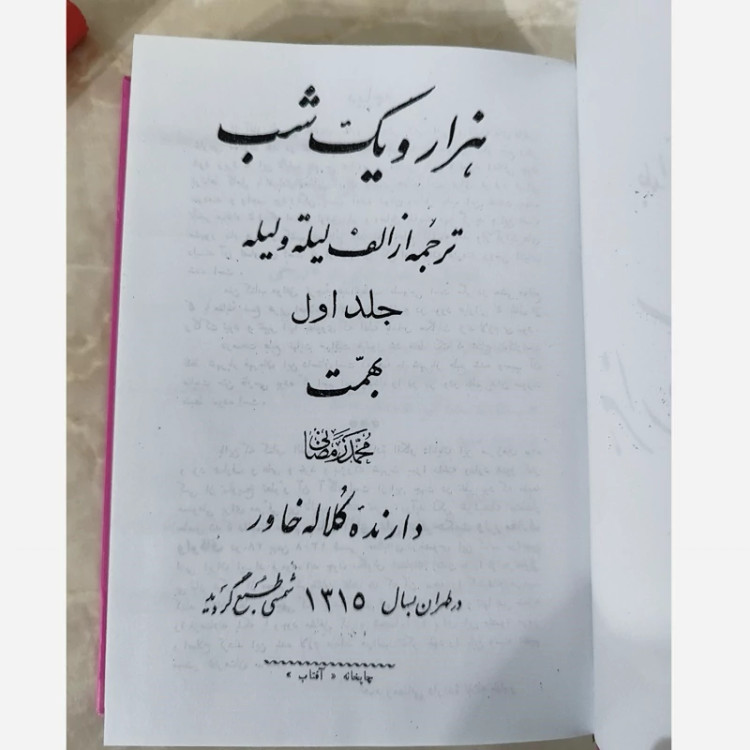 هزار و یک شب
ترجمه از الف لیلة و لیله
جلد اول
بهمّت
محمد رمضانی
دارنده کلاله خاور
در طهران بسال ۱۳۱۵ شمسی طبع گردید
چاپخانه « آفتاب »